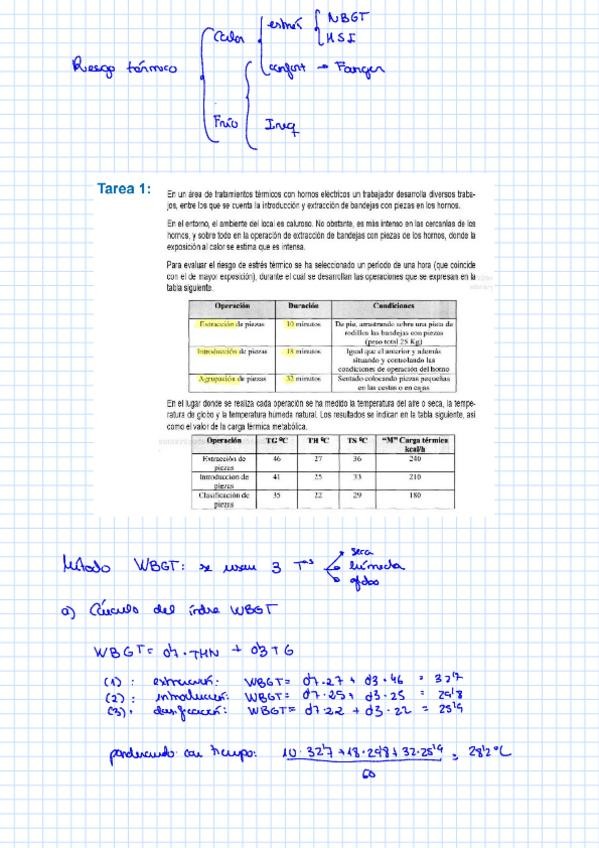 Riesgo térmico
Calor
estrés
WBGT
HSI
confort → Fanger
Frío
Ireq
Tarea 1:
En un área de tratamientos térmicos con hornos eléctricos un trabajador desarrolla diversos traba-
jos, entre los que se cuenta la introducción y extracción de bandejas con piezas en los hornos.
En el entorno, el ambiente del local es caluroso. No obstante, es más intenso en las cercanías de los
hornos, y sobre todo en la operación de extracción de bandejas con piezas de los hornos, donde la
exposición al calor se estima que es intensa.
Para evaluar el riesgo de estrés térmico se ha seleccionado un período de una hora (que coincide
con el de mayor exposición), durante el cual se desarrollan las operaciones que se expresan en la
tabla siguiente.
Operación Duración Condiciones
Extracción de piezas 10 minutos De pie, arrastrando sobre una pista de
rodillos las bandejas con piezas
(peso total 25 Kg)
Introducción de piezas 18 minutos Igual que el anterior y además
situando y controlando las
condiciones de operación del horno
Agrupación de piezas 32 minutos Sentado colocando piezas pequeñas
en las cestas o en cajas
En el lugar donde se realiza cada operación se ha medido la temperatura del aire o seca, la tempe-
ratura de globo y la temperatura húmeda natural. Los resultados se indican en la tabla siguiente, así
como el valor de la carga térmica metabólica.
Operación TG ºC TH ºC TS ºC "M" Carga térmica
kcal/h
Extracción de
piezas 46 27 36 240
Introducción de
piezas 41 25 33 210
Clasificación de
piezas 35 22 29 180
Método WBGT: se usan 3 Tas
seca
húmeda
globo
a) Cálculo del índice WBGT
WBGT = 0'7 · THN + 0'3 TG
(1): extracción: WBGT = 0'7·27 + 0'3·46 = 32'7
(2): introducción: WBGT = 0'7·25 + 0'3·25 = 29'8
(3): clasificación: WBGT = 0'7·22 + 0'3·22 = 25'9
ponderando con tiempo: 10·32'7 + 18·29'8 + 32·25'9 = 28'2 ºC
60